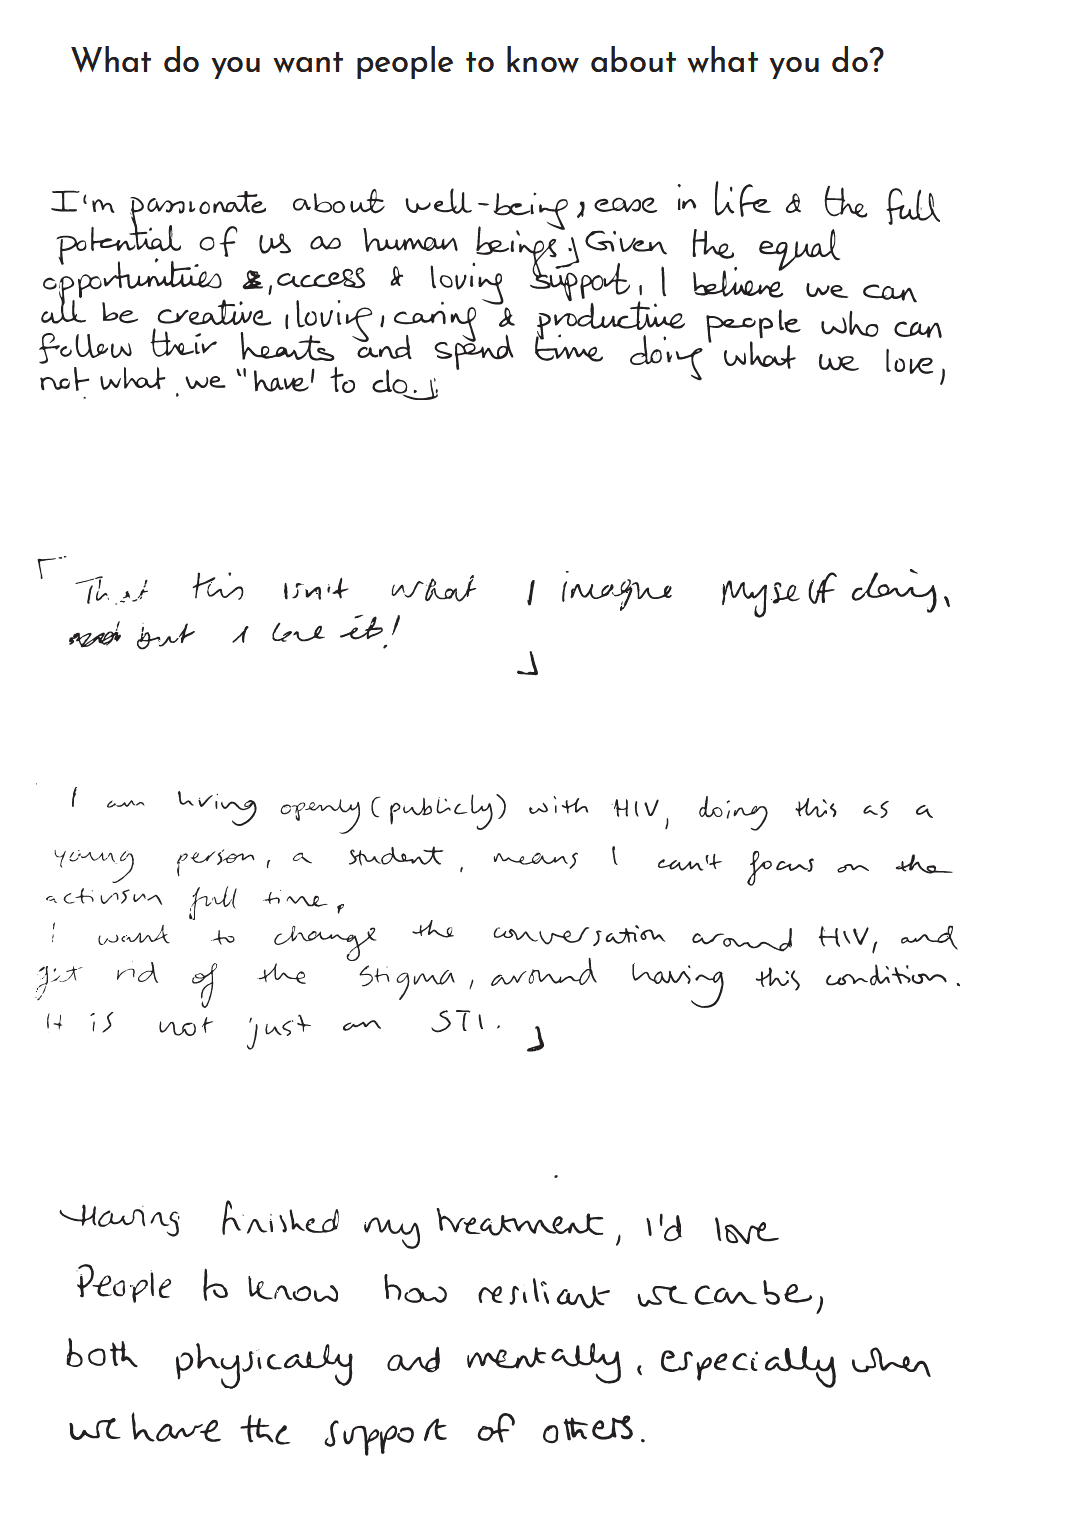 What do you want people to know about what you do?
I'm passionate about well-being, ease in life & the full
potential of us as human beings. Given the equal
opportunities &, access & loving support, I believe we can
all be creative, loving, caring & productive people who can
follow their hearts and spend time doing what we love,
not what we "have' to do.
That this isn't what I imagne myself doing,
but I love it!
I am living openly (publicly) with HIV, doing this as a
young person, a student, means I can't focus on the
activism full time,
I want to change the conversation around HIV, and
get rid of the stigma, around having this condition.
It is not just an STI.
Having finished my treatment, I'd love
People to know how resiliant we can be,
both physically and mentally, especially when
we have the support of others.